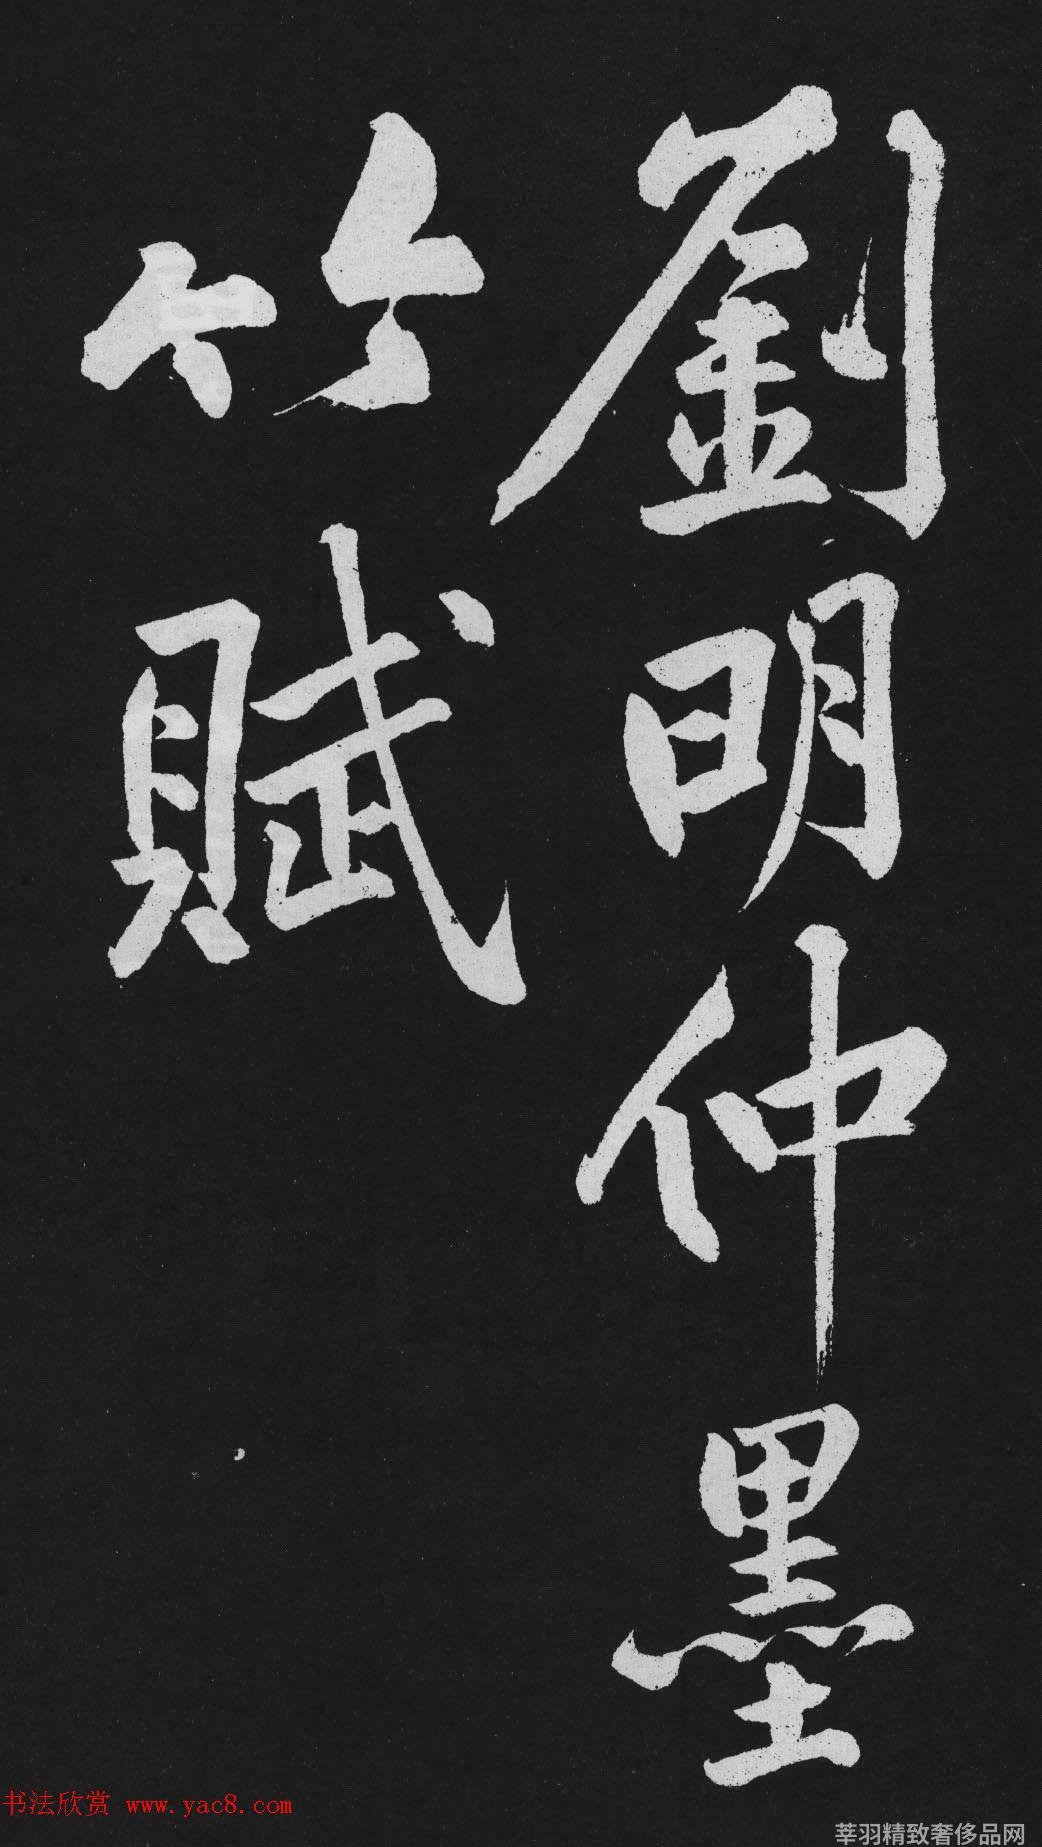 劉明仲墨
竹賦
书法欣赏 www.yac8.com
莘羽精致奢侈品网